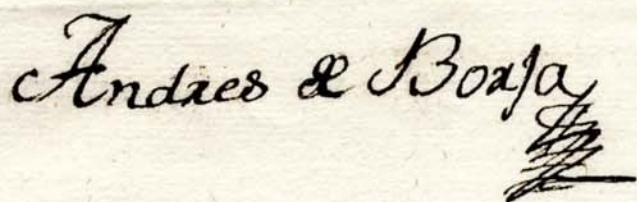 Andres de Borja